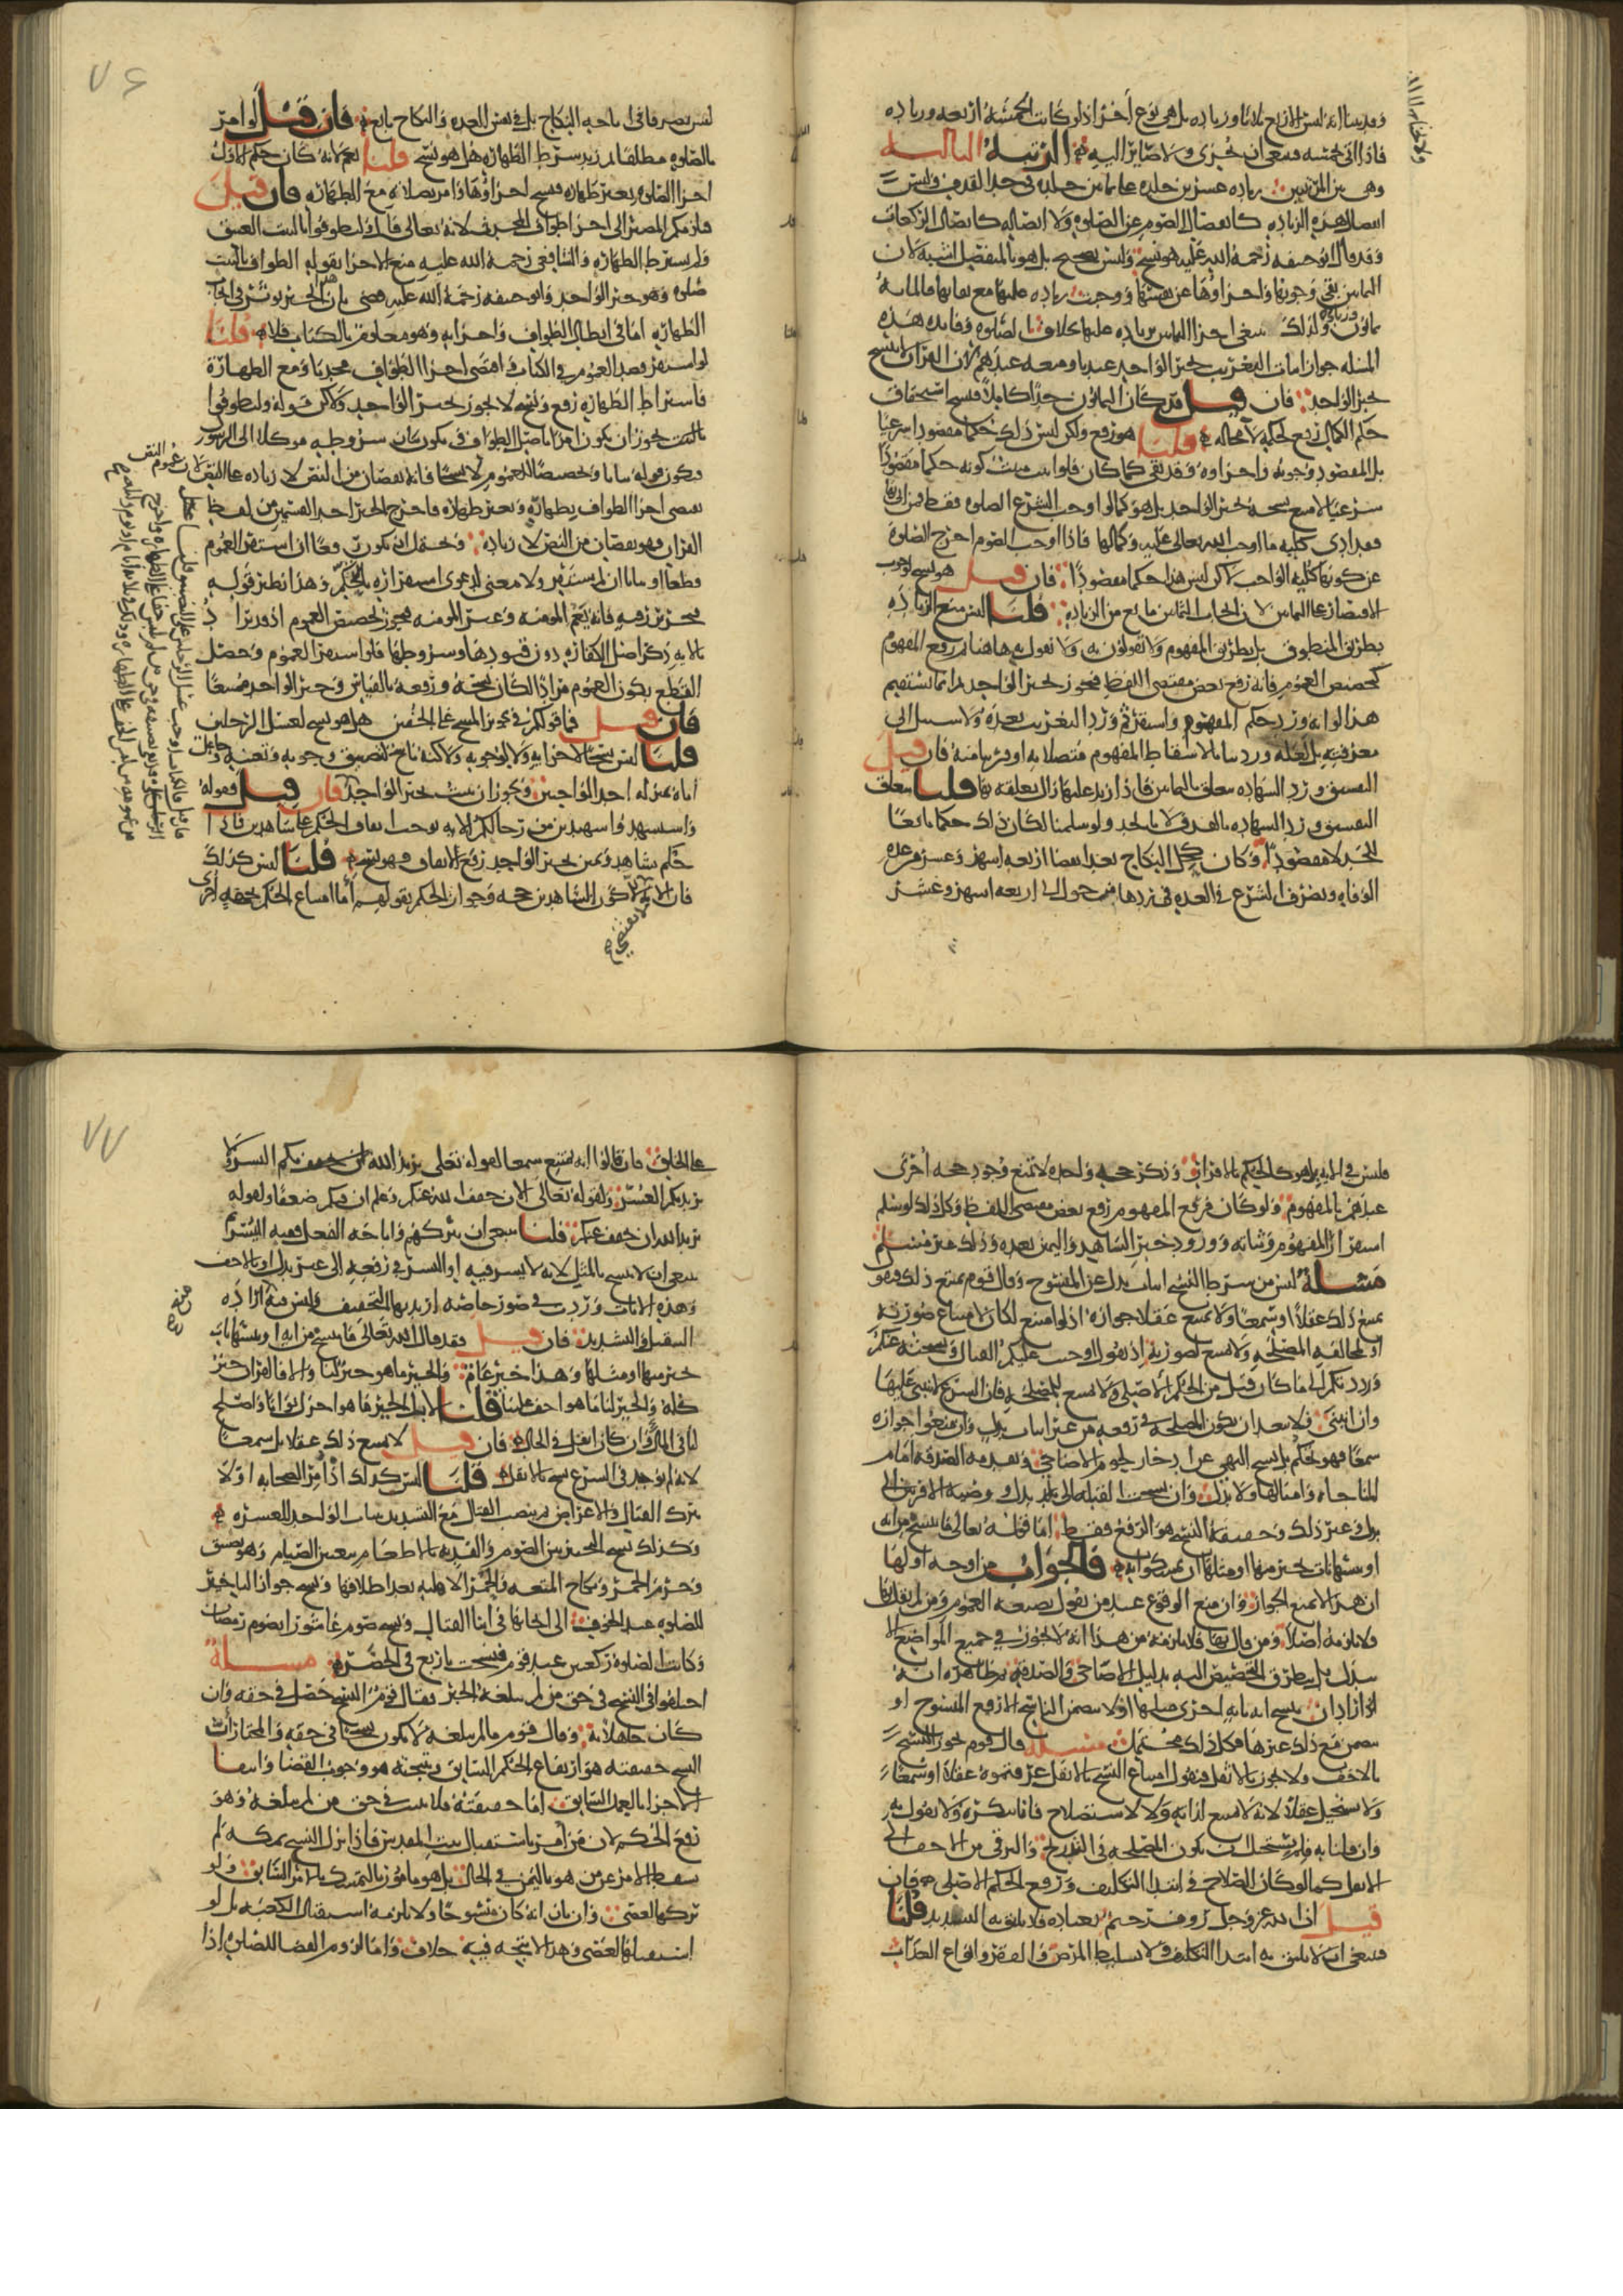 وقد بينا انه ليس الاربع ثلاثا وزياده بل هي نوع اخر اذ لو كانت الخمسه اربعه وزياده
فاذا اتى بخمسه فينبغي ان تجزى ولا صاير اليه الرتبه الثالثه
وهي بين المرتبتين زياده عشرين جلده على ثمانين جلده في حد القذف وليس
اتصال هذه الزياده كانفصال الصوم عن الصلوه ولا اتصاله كاتصال الركعات
وقد قال ابو حنيفه رحمة الله عليه هو نسخ وليس بصحيح بل هو بالمنفصل اشبه لان
الثمانين نفى وجوبها واجزاوها عن نفسها ووجبت زياده عليها مع بقايها فالمائه
ثمانون وزياده ولذلك لا ينتفي اجزا الثمانين بزياده عليها بخلاف الصلوه وفايده هذه
المسله جواز اثبات التغريب بخبر الواحد عندنا ومنعه عندهم لان القران لا ينسخ
بخبر الواحد فان قيل قد كان الثمانون حدا كاملا فنسخ استحقاق
حكم الكمال رفع لحكمه لا محاله قلنا هو رفع ولكن ليس ذلك حكما مقصودا شرعيا
بل المقصود وجوبه واجزاوه وقد بقي كما كان فلو اثبت مثبت كونه حكما مقصودا
شرعيا لامتنع نسخه بخبر الواحد بل هو كما لو اوجب الشرع الصلوه فقط فمن اتى بها
فقد ادى كليه ما اوجب الله تعالى عليه وكمالها فاذا اوجب الصوم اخرج الصلوة
عن كونها كليه الواجب لاكن ليس هذا حكما مقصودا فان قيل هو نسخ لوجوب
الاقتصار على الثمانين لان ايجاب الثمانين مانع من الزياده قلنا ليس منع الزياده
بطريق المنطوق بل بطريق المفهوم ولا تقولون به ولا نقول به هاهنا ثم رفع المفهوم
كتخصيص العموم فانه رفع بعض مقتضى اللفظ فيجوز بخبر الواحد ثم انما يستقيم
هذا لو انه ورد حكم المفهوم واستقر ثم ورد التغريب بعده ولا سبيل الى
معرفته بل لعله ورد بيانا لاسقاط المفهوم متصلا به او قريبا منه فان قيل
التفسيق ورد الشهاده متعلق بالثمانين فاذا زيد عليها زال تعلقه بها قلنا يتعلق
التفسيق ورد الشهاده بالقذف لا بالحد ولو سلمنا لكان ذلك حكما تابعا
للحد لا مقصودا وكان كحل النكاح بعد انقضا اربعه اشهر وعشر من عده
الوفاه وتصرف الشرع في العده في ردها من حول الى اربعه اشهر وعشر
٧٦
ليس تصرفا في اباحه النكاح بل في نفس العده والنكاح تابع فان قيل لو امر
بالصلوه مطلقا ثم زيد شرط الطهاره هل هو نسخ قلنا نعم لانه كان حكم الاول
اجزا الصلوه بغير طهاره فنسخ اجزاوها وامر بصلاه مع الطهاره فان قيل
فلزمكم المصير الى اجزا طواف المحدث لانه تعالى قال وليطوفوا بالبيت العتيق
ولم يشترط الطهاره والشافعي رحمة الله عليه منع الاجزا بقوله الطواف بالبيت
صلوه وهو خبر الواحد وابو حنيفه رحمة الله عليه قضى بان هذا الخبر يوثر في ايجاب
الطهاره اما في ابطال الطواف واجزايه وهو معلوم بالكتاب فلا قلنا
لو استقر قصد العموم في الكتاب واقتضى اجزا الطواف محدثا ومع الطهارة
فاشتراط الطهاره رفع ونسخ لا يجوز بخبر الواحد ولاكن قوله وليطوفوا
بالبيت يجوز ان يكون امرا باصل الطواف ويكون بيان شروطه موكلا الى الرسول
فيكون قوله بيانا وتخصيصا للعموم لا نسخا فانه نقصان من النص لا زياده على النص لان عموم النص
يقتضي اجزا الطواف بطهاره وبغير طهاره فاخرج الخبر احد القسمين من لفظ
القران فهو نقصان من النص لا زياده ويحتمل ان يكون رفعا ان استقر العموم
قطعا وبيانا ان لم يستقر ولا معنى لدعوى استقراره بالتحكم وهذا نظير قوله
فتحرير رقبه فانه يعم المومنه وغير المومنه فيجوز تخصيص العموم اذ قد يراد
بالايه ذكر اصل الكفاره دون قيودها وشروطها فلو استقر العموم وحصل
القطع بكون العموم مرادا لكان نسخه ورفعه بالقياس وخبر الواحد ممتنعا
فان قيل فما قولكم في تجويز المسح على الخفين هل هو نسخ لغسل الرجلين
قلنا ليس نسخا لاجزايه ولا لوجوبه ولاكنه ناسخ لتضييق وجوبه وتعينه وجاعل
اياه بمنزله احد الواجبين ويجوز ان يثبت بخبر الواحد فان قيل فقوله
واستشهدوا شهيدين من رجالكم الايه توجب ايقاف الحكم على شاهدين فاذا
حكم بشاهد ويمين بخبر الواحد رفع الايقاف فهو نسخ قلنا ليس كذلك
فان الايه لا تقتضي الا كون الشاهدين حجه وجواز الحكم بقولهم اما امتناع الحكم بحجه اخرى
فليس في الايه بل هو كالحكم بالاقرار وذكر حجه واحده لا تمنع وجود حجه اخرى
عندهم بالمفهوم ولو كان فرفع المفهوم رفع بعض مقتضى اللفظ وكل ذلك لو سلم
استقرار المفهوم وثباته وورود خبر الشاهد واليمين بعده وذلك غير مسلم
مسلة ليس من شرط النسخ اثبات بدل عن المفسوخ وقال قوم يمتنع ذلك فهو
يمتنع ذلك عقلا او سمعا ولا يمتنع عقلا جوازه اذ لو امتنع لكان لامتناع صورته
او لمخالفه المصلحه ولا يمتنع لصورته اذ يقول اوجبت عليكم القتال ونسخته عنكم
ورددتكم الى ما كان قبل من الحكم الاصلي ولا يمتنع للمصلحه فان الشرع لا يبتنى عليها
وان ابتنى فلا يبعد ان تكون المصلحه في رفعه من غير اثبات بدل وان منعوا جوازه
سمعا فهو تحكم بل نسخ النهي عن ادخار لحوم الاضاحي وتقدمه الصدقه امام
المناجاه وامثالها ولا بدل وان نسخت القبله الى بدل ووصيه الاقربين الى
بدل وغير ذلك وحقيقة النسخ هو الرفع فقط اما قوله تعالى ما ننسخ من ايه
او ننسها نات بخير منها او مثلها ان تمسكوا به فالجواب من اوجه اولها
ان هذا لا يمنع الجواز وان منع الوقوع عند من يقول بصيغه العموم ومن لم يقل بها
فلا يلزمه اصلا ومن قال بها فلا يلزمه من هذا انه لا يجوز في جميع المواضع الا
ببدل بل يتطرق التخصيص اليه بدليل الاضاحي والصدقه ثم ظاهره انه
اراد ان نسخ ايه بايه اخرى مثلها اولا يتضمن الناسخ الا رفع المنسوخ او
يتضمن مع ذلك غيرها فكل ذلك محتمل مسله قال قوم يجوز النسخ
بالاخف ولا يجوز بالاثقل فنقول امتناع النسخ بالاثقل عرفتموه عقلا او شمعا
ولا يستحيل عقلا لانه لا يمتنع لذاته ولا للاستصلاح فانا ننكره ولا نقول به
وان قلنا به فلم يستحيل ان تكون المصلحه في التدريج والترقي من الاخف الى
الاثقل كما لو كان الصلاح في ابتدا التكليف ورفع الحكم الاصلي فان
قيل ان الله عز وجل روف رحيم بعباده فلا يليق به التشديد قلنا
فينبغي ان لا يليق به ابتدا التكليف ولا تسليط المرض والفقر وانواع العذاب
٧٧
على الخلق فان قالوا انه يمتنع سمعا لقوله تعلى يريد الله بكم اليسر ولا
يريد بكم العسر ولقوله تعالى الان خفف الله عنكم وعلم ان فيكم ضعفا ولقوله
يريد الله ان يخفف عنكم قلنا فينبغي ان يتركهم واباحه الفعل ففيه اليسر ثم
ينبغي ان لا ينسخ بالمثل لانه لا يسر فيه اذ اليسر في رفعه الى غير بدل او بالاخف
وهذه الايات وردت في صور خاصه اريد بها التخفيف وليس منه اراده
التثقيل والتشديد فان قيل فقد قال الله تعالى ما ننسخ من ايه او ننسها نات
بخير منها او مثلها وهذا خبر عام والخير ما هو خير لنا والا فالقران خير
كله والخير لنا ما هو اخف علينا قلنا لا بل الخير ما هو اجزل ثوابا واصلح
لنا في المال وان كان اثقل في الحال فان قيل لا يمتنع ذلك عقلا بل سمعا
لانه لم يوجد في الشرع نسخ بالاثقل قلنا ليس كذلك اذ امر الصحابه اولا
بترك القتال والاعراض ثم بنصب القتال مع التشديد بثبات الواحد للعشره
وكذلك نسخ التخيير بين الصوم والفديه بالاطعام بتعيين الصيام وهو تضييق
وحرم الخمر ونكاح المتعه والحمر الاهليه بعد اطلاقها ونسخ جواز التاخير
للصلوه عند الخوف الى ايجابها في اثنا القتال ونسخ صوم عاشورا بصوم رمضان
وكانت الصلوة ركعتين عند قوم فنسخت باربع في الحضر مسلة
اختلفوا في النسخ في حق من لم يبلغه الخبر فقال قوم النسخ حصل في حقه وان
كان جاهلا به وقال قوم ما لم يبلغه لا يكون نسخا في حقه والمختار ان
النسخ حقيقته هو ارتفاع الحكم السابق ونتيجته هو وجوب القضا وانتفا
الاجزا بالعمل السابق اما حقيقته فلا تثبت في حق من لم يبلغه وهو
رفع الحكم لان من امر باستقبال بيت المقدس فاذا نزل النسخ بمكه لم
يسقط الامر عن من هو باليمن في الحال بل هو مامور بالتمسك بالامر السابق ولو
تركها لعصى وان بان انه كان منسوخا ولا يلزمه استقبال الكعبه بل لو
استقبلها لعصى وهذا لا يتجه فيه خلاف واما لزوم القضا للصلوه اذا